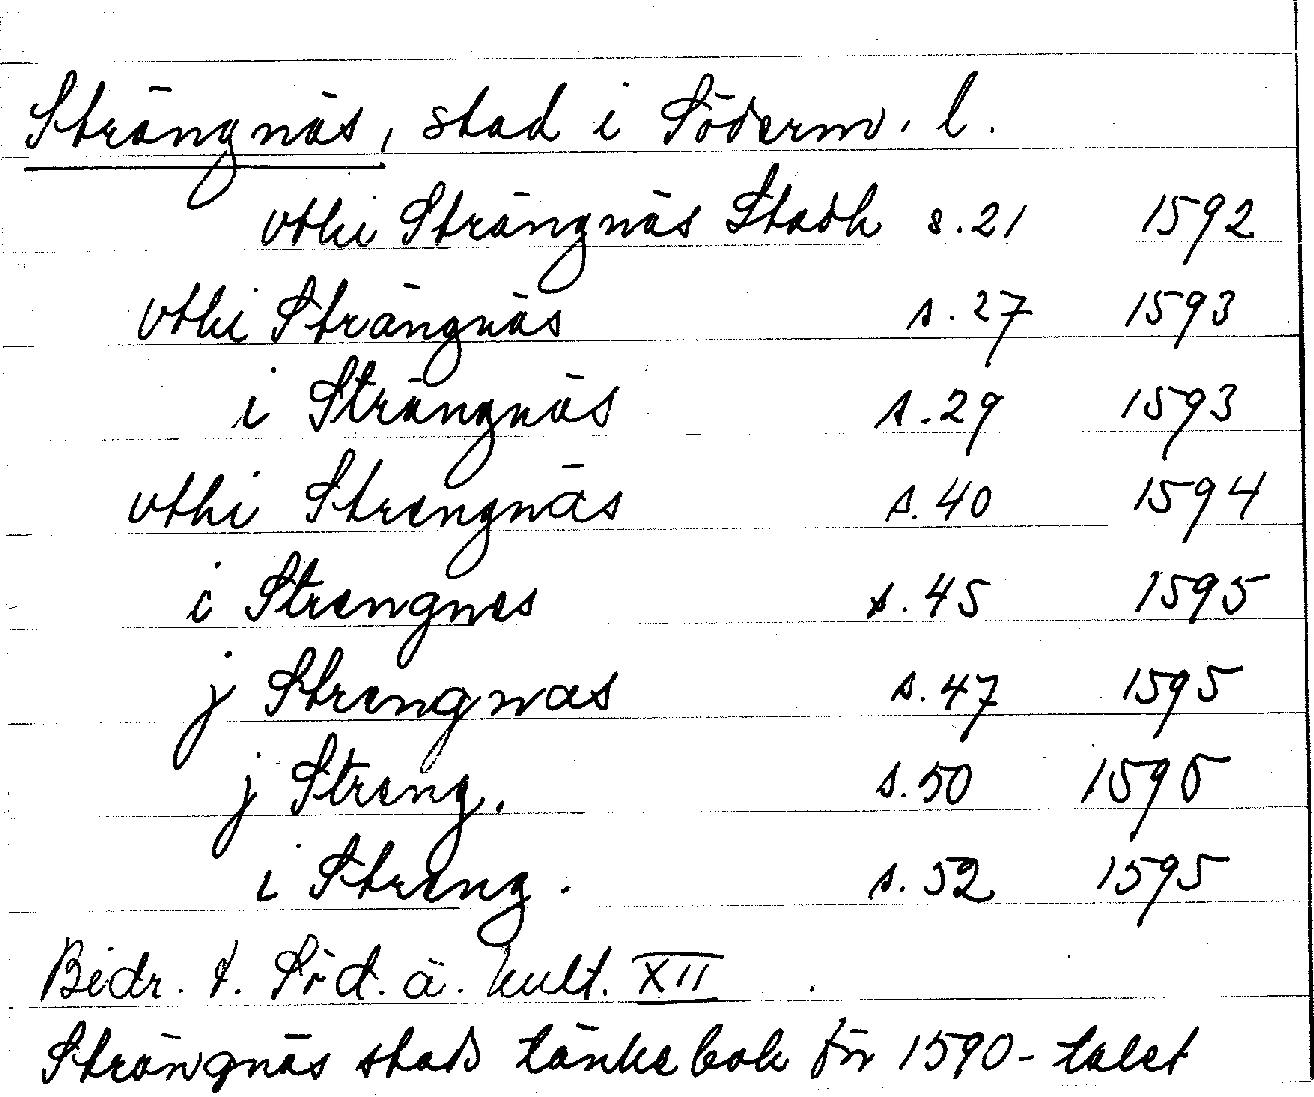 Strängnäs, stad i Söderm. l.
vthi Strängnäs Stadh s.21 1592
vthi Strängnäs s.27 1593
i Strängnäs s.29 1593
vthi Strengnäs s.40 1594
i Strengnes s.45 1595
j Strengnas s.47 1595
j Streng. s.50 1595
i Streng. s.52 1595
Bidr. t. Söd. ä. kult. XII
Strängnäs stads tänkebok för 1590-talet